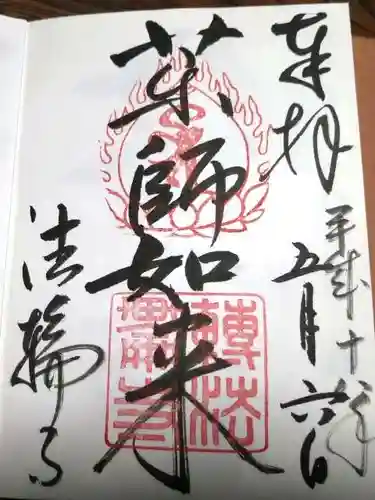 奉拝
平成十年
五月六日
薬師如来
法輪寺